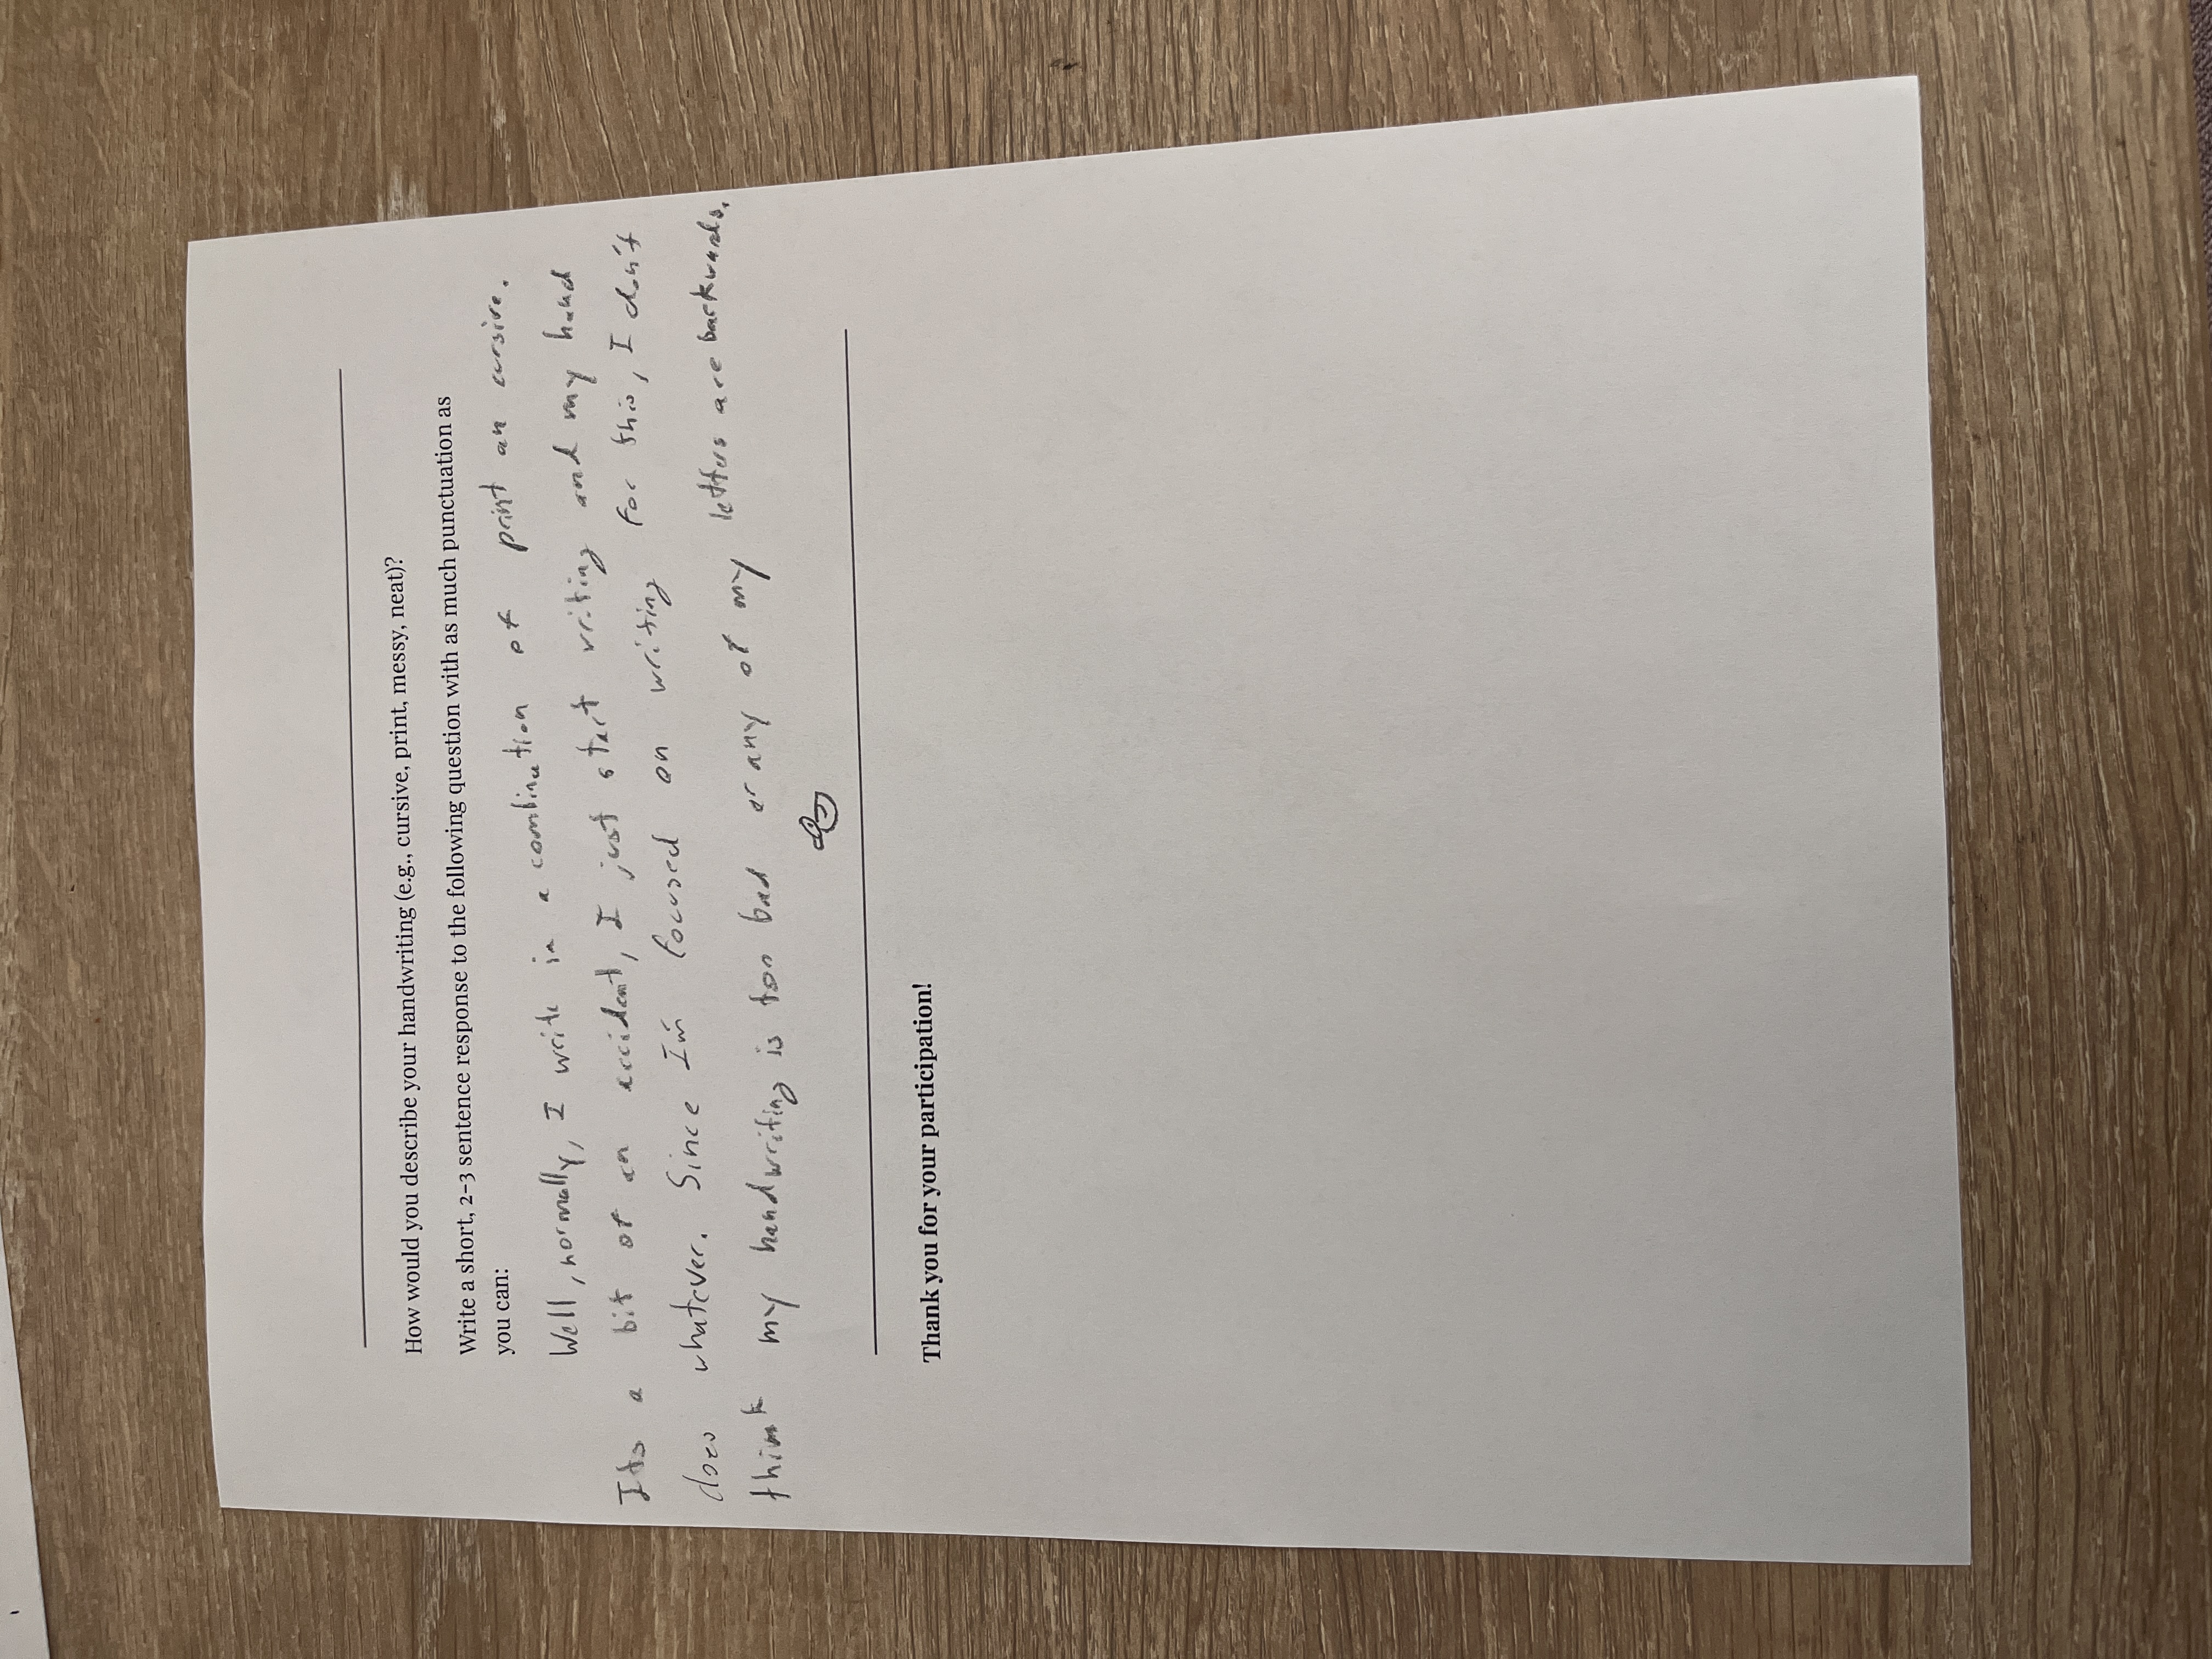 How would you describe your handwriting (e.g., cursive, print, messy, neat)?
Write a short, 2-3 sentence response to the following question with as much punctuation as
you can:
Well, normally, I write in a combination of print an cursive.
Its a bit of an accident, I just start writing and my hand
does whatever. Since I'm focused on writing for this, I don't
think my handwriting is too bad or any of my letters are backwards.
Thank you for your participation!